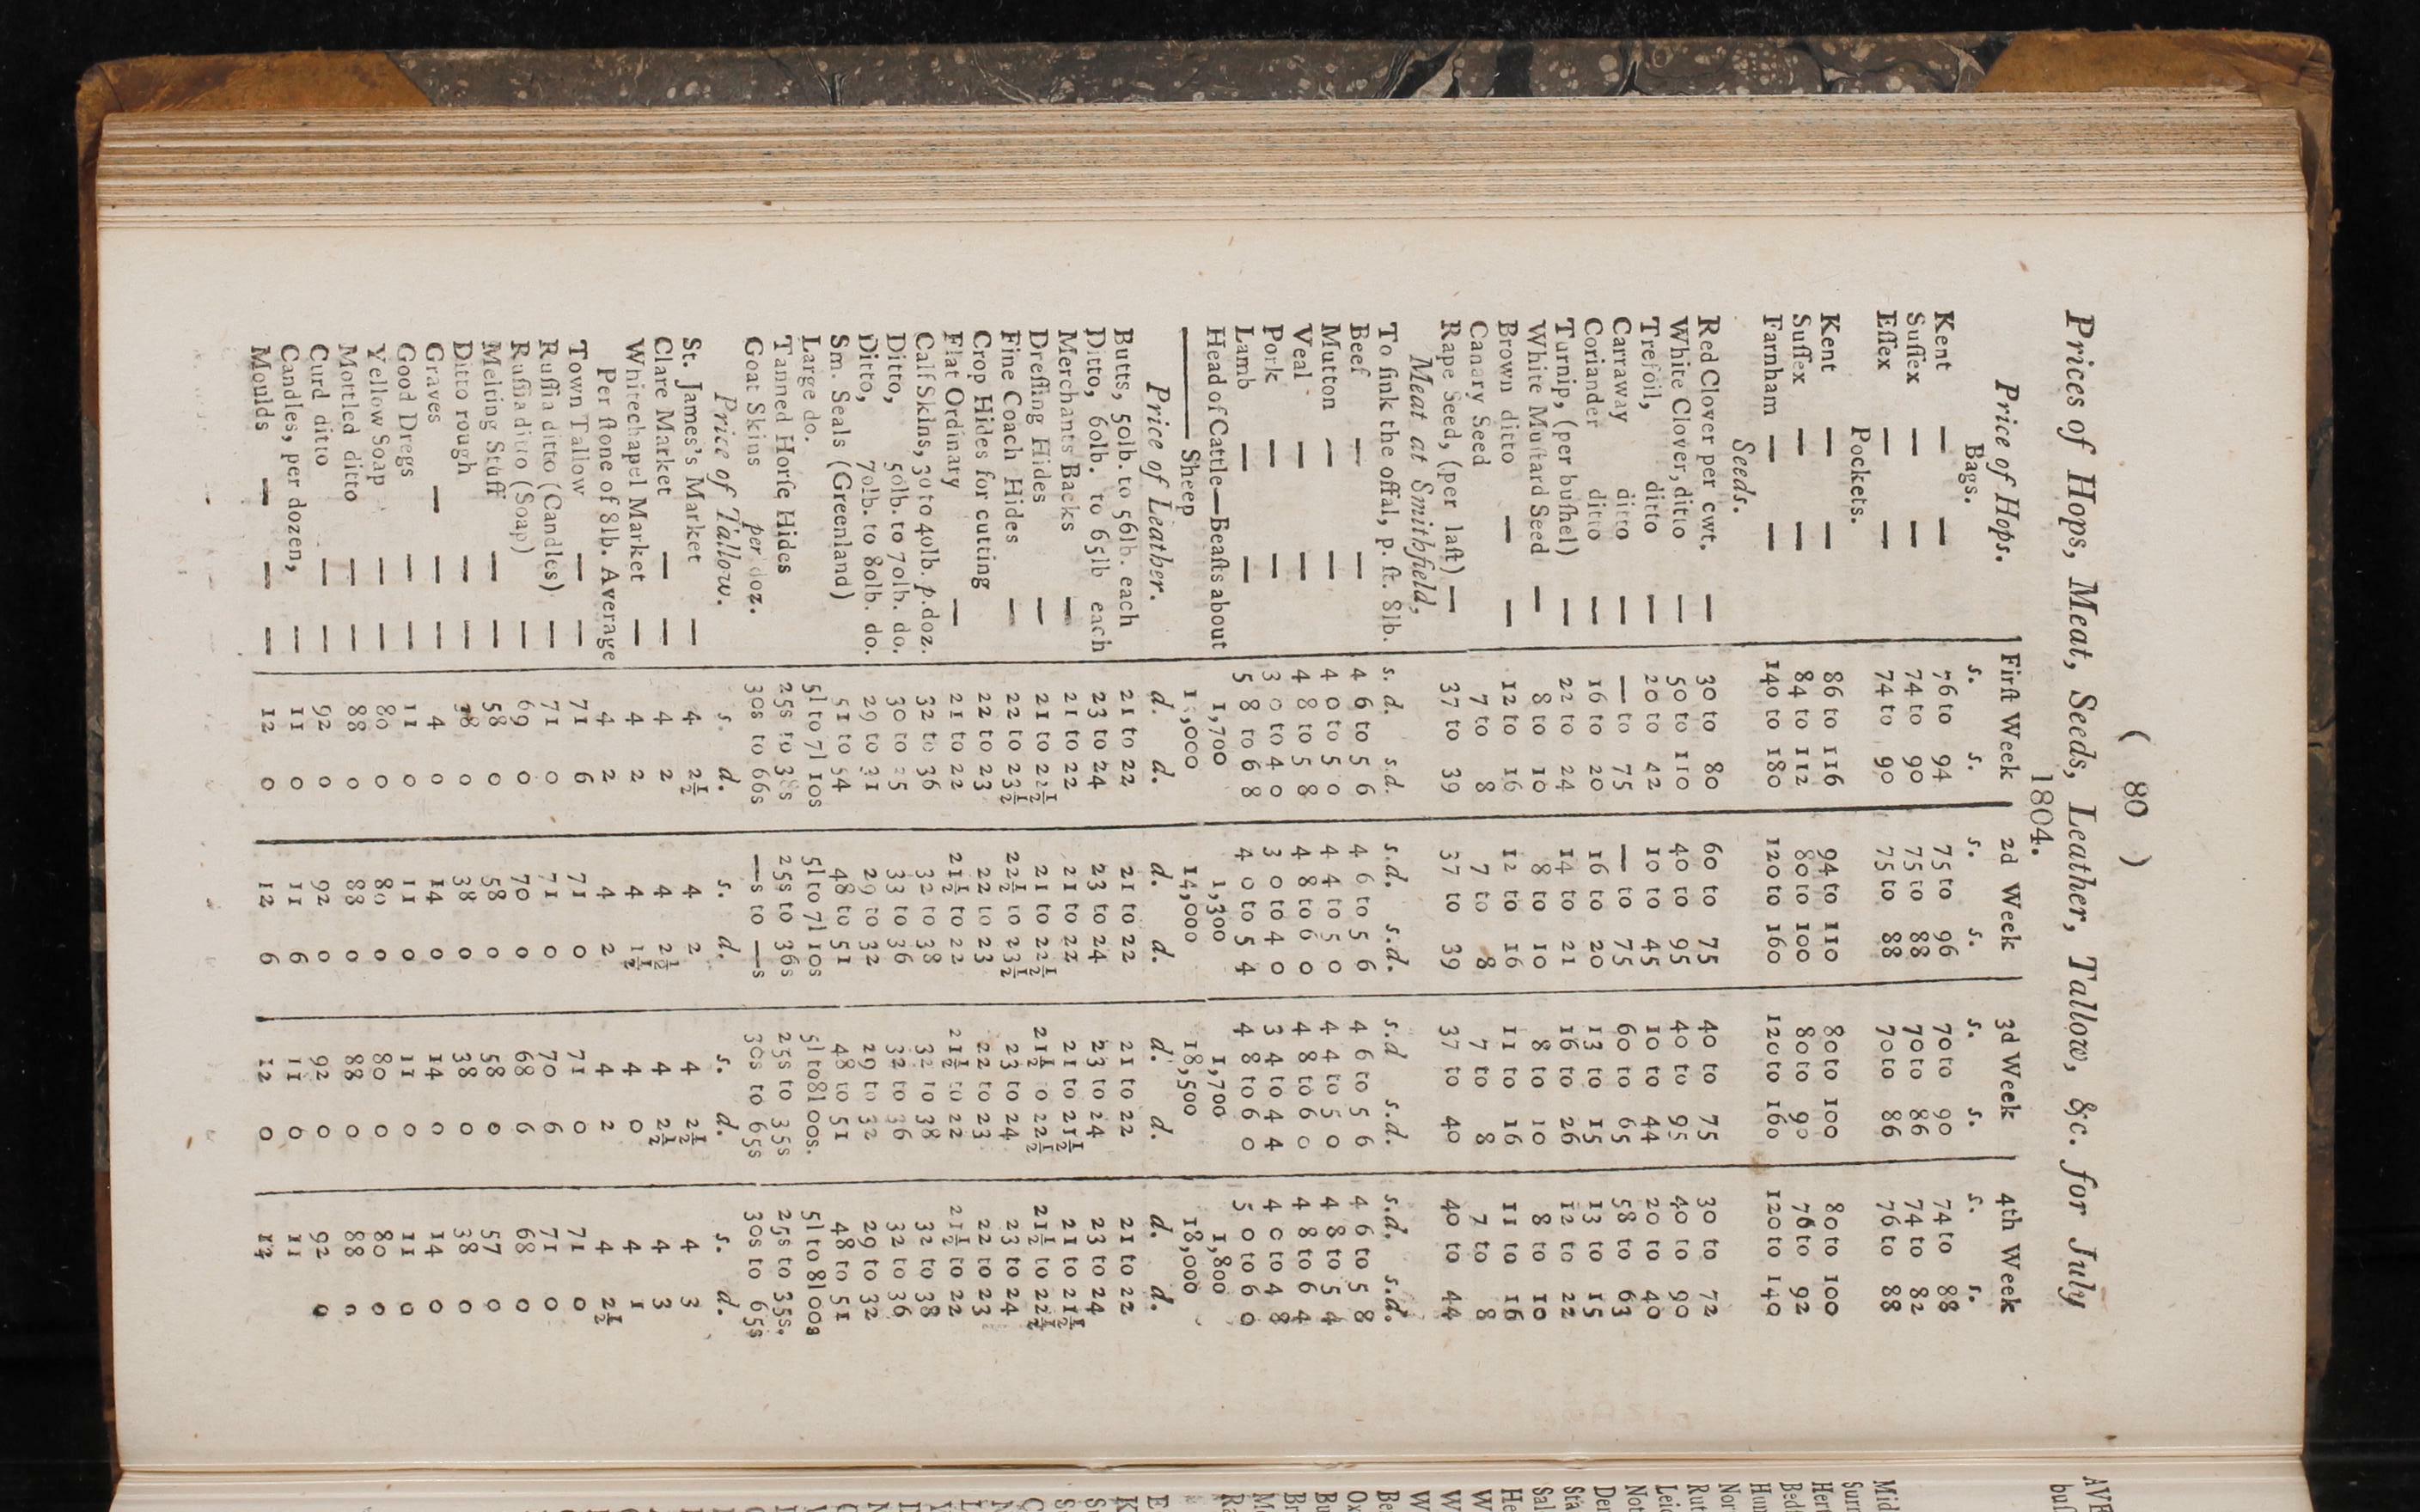 ( 80 )
Prices of Hops, Meat, Seeds, Leather, Tallow, &c. for July
1804.
Price of Hops. First Week 2d Week 3d Week 4th Week
Bags. s. s. s. s. s. s. s. s.
Kent — — 76 to 94 75 to 96 70 to 90 74 to 88
Suſſex — — 74 to 90 75 to 88 70 to 86 74 to 82
Eſſex — — 74 to 90 75 to 88 70 to 86 76 to 88
Pockets.
Kent — — 86 to 116 94 to 110 80 to 100 80 to 100
Suſſex — — 84 to 112 80 to 100 80 to 90 76 to 92
Farnham — — 140 to 180 120 to 160 120 to 160 120 to 140
Seeds.
Red Clover per cwt. — 30 to 80 60 to 75 40 to 75 30 to 72
White Clover, ditto — 50 to 110 40 to 95 40 to 95 40 to 90
Trefoil, ditto — 20 to 42 10 to 45 10 to 44 20 to 40
Carraway ditto — — to 75 — to 75 60 to 65 58 to 63
Coriander ditto — 16 to 20 16 to 20 13 to 15 13 to 15
Turnip, (per buſhel) — 22 to 24 14 to 21 16 to 26 12 to 22
White Muſtard Seed — 8 to 10 8 to 10 8 to 10 8 to 10
Brown ditto — — 12 to 16 12 to 16 11 to 16 11 to 16
Canary Seed 7 to 8 7 to 8 7 to 8 7 to 8
Rape Seed, (per laſt) — 37 to 39 37 to 39 37 to 40 40 to 44
Meat at Smithfield,
To ſink the offal, p. ſt. 8lb. s. d. s.d. s.d. s.d. s.d s.d. s.d. s.d.
Beef — — 4 6 to 5 6 4 6 to 5 6 4 6 to 5 6 4 6 to 5 8
Mutton — — 4 0 to 5 0 4 4 to 5 0 4 4 to 5 0 4 8 to 5 4
Veal — — 4 8 to 5 8 4 8 to 6 0 4 8 to 6 0 4 8 to 6 4
Pork — — 3 0 to 4 0 3 0 to 4 0 3 4 to 4 4 4 0 to 4 8
Lamb — — 5 8 to 6 8 4 0 to 5 4 4 8 to 6 0 5 0 to 6 0
Head of Cattle—Beaſts about 1,700 1,300 1,700 1,800
——— Sheep ,000 14,000 18,500 18,000
Price of Leather. d. d. d. d. d. d. d. d.
Butts, 50lb. to 56lb. each 21 to 22 21 to 22 21 to 22 21 to 22
Ditto, 60lb. to 65lb each 23 to 24 23 to 24 23 to 24 23 to 24
Merchants Backs — 21 to 22 21 to 22 21 to 21½ 21 to 21½
Dreſſing Hides — 21 to 22½ 21 to 22½ 21½ to 22½ 21½ to 22½
Fine Coach Hides — 22 to 23½ 22½ to 23½ 23 to 24 23 to 24
Crop Hides for cutting 22 to 23 22 to 23 22 to 23 22 to 23
Flat Ordinary — 21 to 22 21½ to 22 21½ to 22 21½ to 22
Calf Skins, 30 to 40lb. p.doz. 32 to 36 32 to 38 32 to 38 32 to 38
Ditto, 50lb. to 70lb. do. 30 to 35 33 to 36 32 to 36 32 to 36
Ditto, 70lb. to 80lb. do. 29 to 31 29 to 32 29 to 32 29 to 32
Sm. Seals (Greenland) 51 to 54 48 to 51 48 to 51 48 to 51
Large do. 5l to 7l 10s 5l to 7l 10s 5l to 8l 00s. 5l to 8l 00s
Tanned Horſe Hides 25s to 38s 25s to 36s 25s to 35s 25s to 35s.
Goat Skins per doz. 30s to 66s —s to —s 30s to 65s 30s to 65s
Price of Tallow. s. d. s. d. s. d. s. d.
St. James's Market — 4 2½ 4 2 4 2½ 4 3
Clare Market — — 4 2 4 2½ 4 2½ 4 3
Whitechapel Market — 4 2 4 1½ 4 0 4 1
Per ſtone of 8lb. Average 4 2 4 2 4 2 4 2½
Town Tallow — — 71 6 71 0 71 0 71 0
Ruſſia ditto (Candles) — 71 0 71 0 70 6 71 0
Ruſſia ditto (Soap) — 69 0 70 0 68 6 68 0
Melting Stuff — — 58 0 58 0 58 0 57 0
Ditto rough — — 38 0 38 0 38 0 38 0
Graves — — — 4 0 14 0 14 0 14 0
Good Dregs — — 11 0 11 0 11 0 11 0
Yellow Soap — — 80 0 80 0 80 0 80 0
Mottled ditto — — 88 0 88 0 88 0 88 0
Curd ditto — — 92 0 92 0 92 0 92 0
Candles, per dozen, — 11 0 11 6 11 6 11
Moulds — — — 12 0 12 6 12 0 12